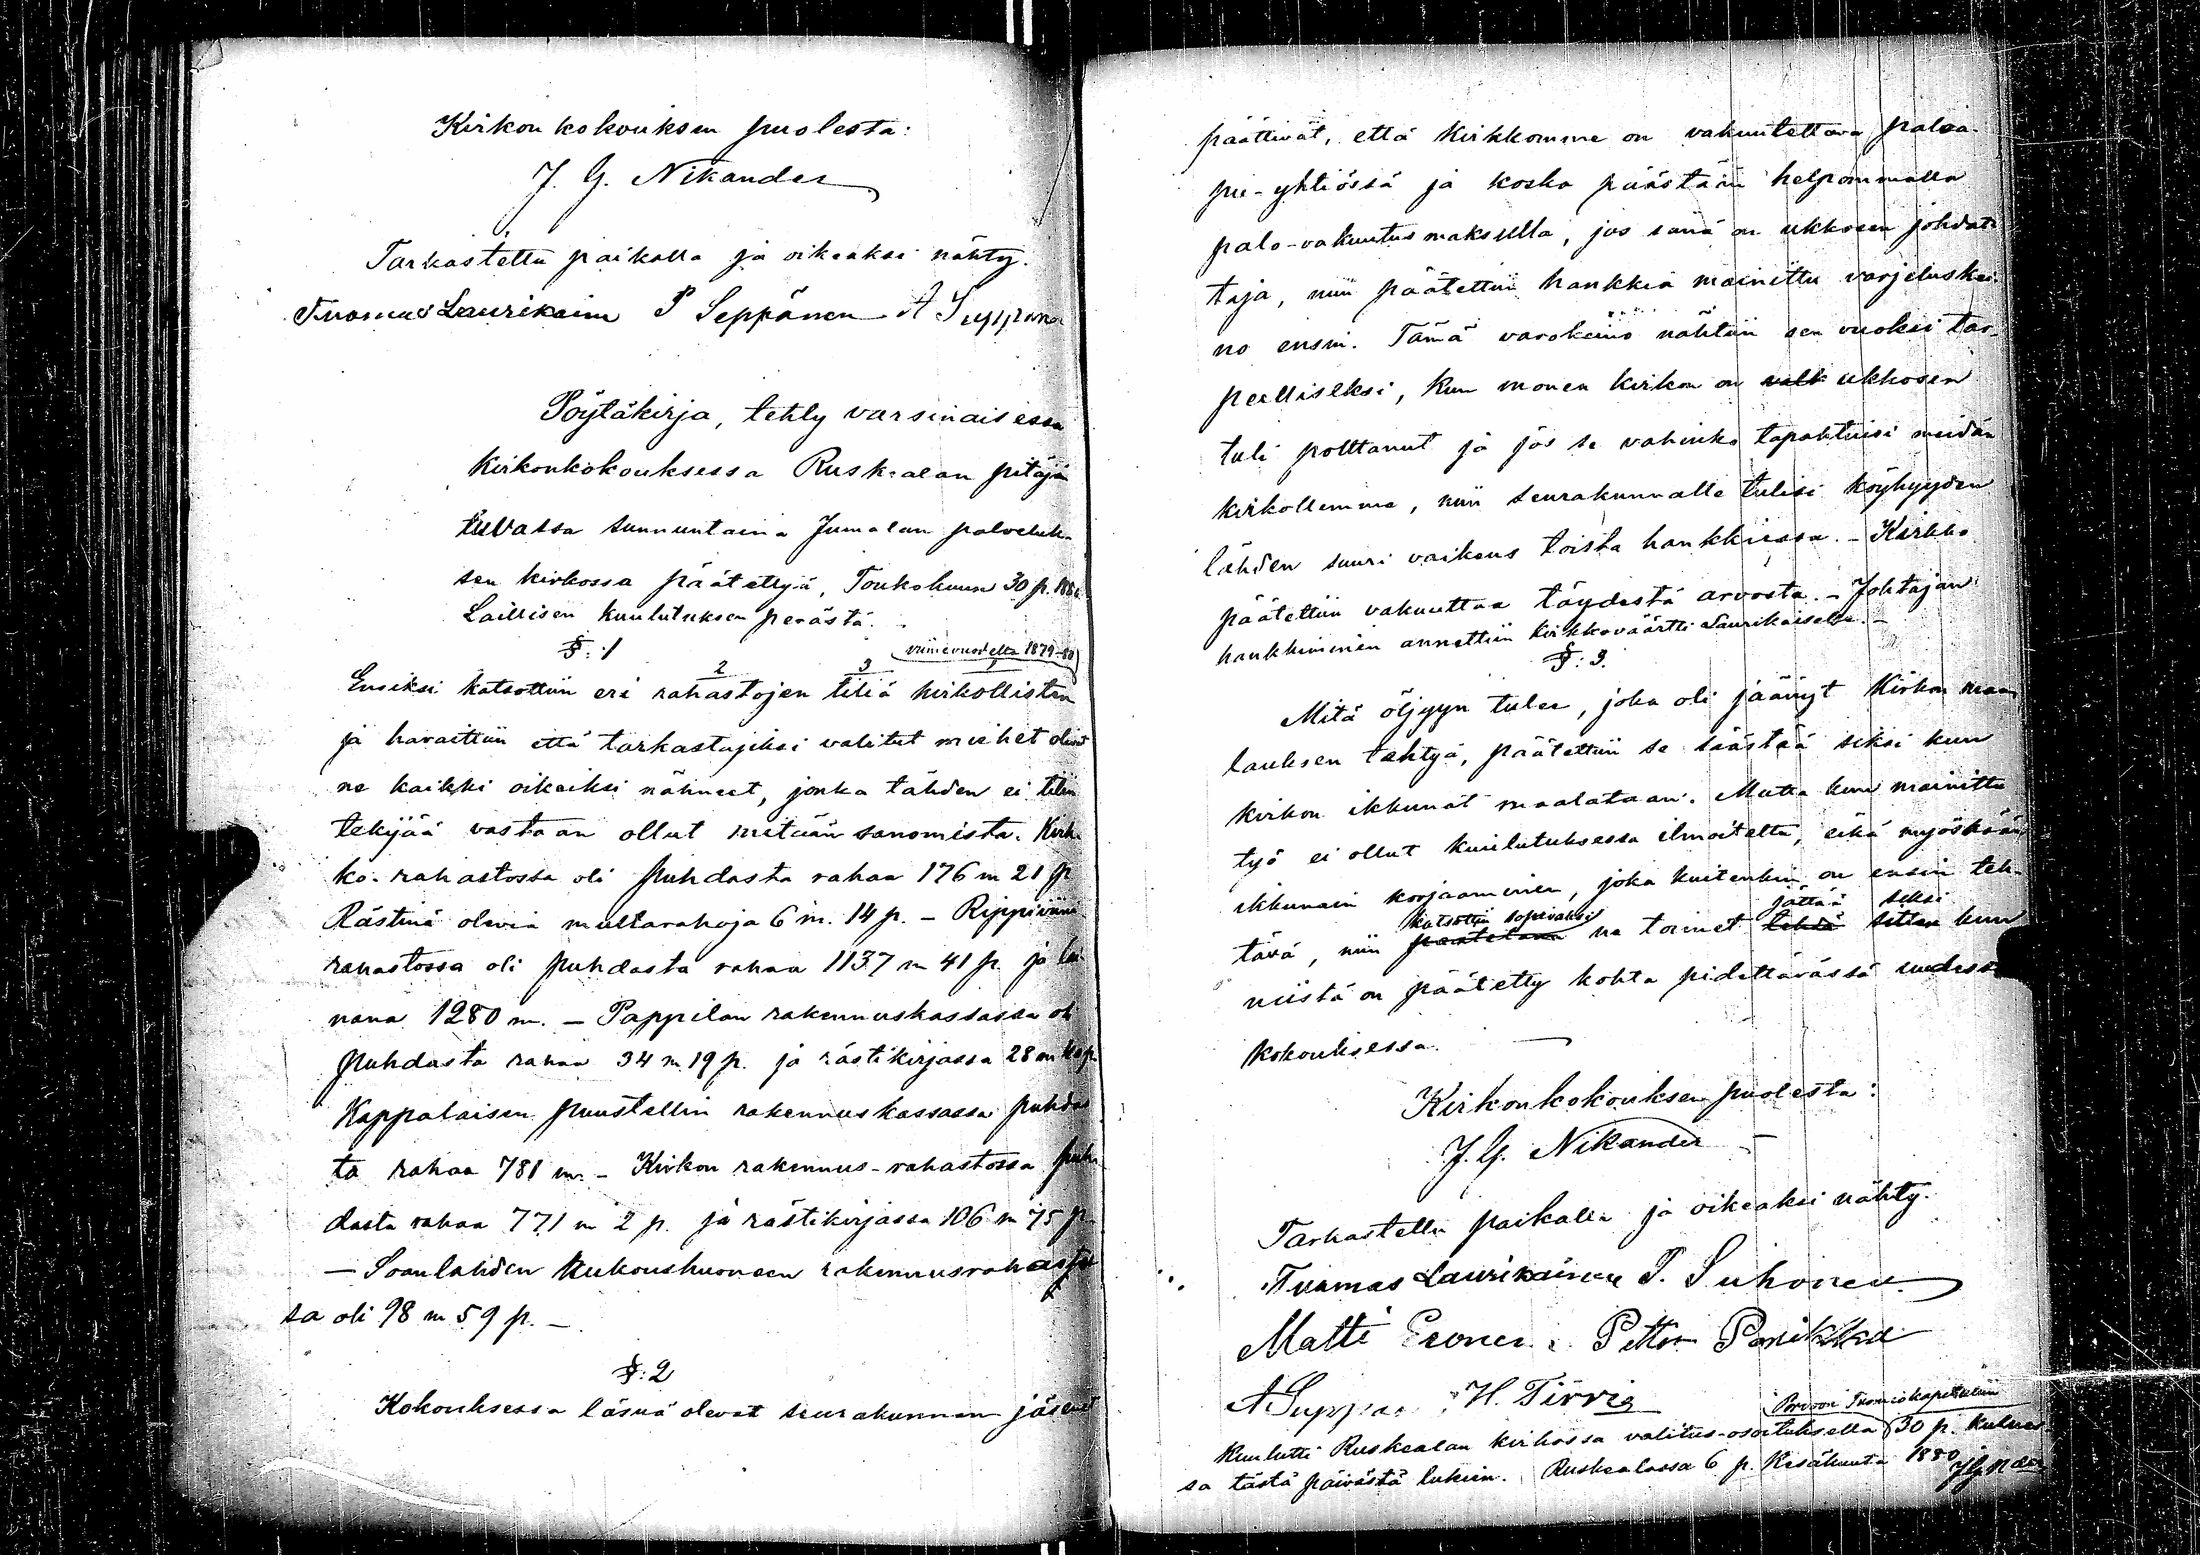 Kirkon kokouksen puolesta:
J. G. Nikander
Tarkastettu paikalla ja oikeaksi nähty.
Tuomas Laurikain P Seppänen A Suppone
Pöytäkirja, tehty varsinaisessa
Kirkonkokouksessa Ruskealan pitäjä
tuvassa sunnuntaina Jumalan palveluk-
sen kirkossa päätettyä, Toukokuun 30 p. 1880.
Laillisen kuulutuksen perästä.
§: 1
viime vuodelta 1879-80
2 3 1
Ensiksi katsottiin eri rahastojen tiliä kirkollisten
ja havaittiin että tarkastajiksi valitut miehet olivat
ne kaikki oikeiksi nähneet, jonka tähden ei tilin
tekijää vastaan ollut mitään sanomista. Kirk-
ko-rahastossa oli puhdasta rahaa 176 m 21 p
Rästinä olevia multarahoja 6 m. 14 p. - Rippiviini
rahastossa oli puhdasta rahaa 1137 m 41 p. ja lai-
nana 1280 m. - Pappilan rakennuskassassa oli
puhdasta rahaa 34 m 19 p. ja rästikirjassa 28 m
Kappalaisen puustellin rakennuskassassa puhdas
ta rahaa 781 m. - Kirkon rakennus-rahastossa puh-
dasta rahaa 771 m 2 p. ja rästikirjassa 106 m 75 p
- Soanlahden Rukoushuoneen rakennusrahastos
sa oli 98 m 59 p. -
§: 2
Kokouksessa läsnä olevat seurakunnan jäsenet
päättivät, että Kirkkomme on vakuutettava paloa-
pu-yhtiössä ja koska päästään helpommalla
palo-vakuutusmaksulla, jos siinä on ukkosen johdat-
taja, niin päätettiin hankkia mainittu varjeluskei-
no ensin. Tämä varokeino nähtiin sen vuoksi tar-
peelliseksi, Kun monen kirkon on valk ukkosen
tuli polttanut ja jos se vahinko tapahtuisi meidän
kirkollemme, niin seurakunnalle tulisi köyhyyden
tähden suuri vaikeus toista hankkiessa. - Kirkko
päätettiin vakuuttaa täydestä arvosta. - Johtajan
hankkiminen annettiin kirkkoväärtti Laurikaiselle. -
§: 3.
Mitä öljyyn tulee, joka oli jäänyt Kirkon maa-
lauksen tehtyä, päätettiin se säästää siksi kun
kirkon ikkunat maalataan. Mutta kun mainittu
työ ei ollut kuulutuksessa ilmoitettu, eikä myöskään
ikkunain korjaaminen, joka kuitenkin on ensin teh-
katsottiin sopivaksi jättää siksi
tävä, niin päätetään ne toimet tehdä sitten kun
niistä on päätetty kohta pidettävässä uudessa
kokouksessa.
Kirkonkokouksen puolesta:
J. G. Nikander
Tarkastettu paikalla ja oikeaksi nähty.
Tuomas Laurikainen P. Suhonen
Matti Eronen Petter Parikka
A Suppo H. Tirri
Porvoon Tuomiokapituliin
Kuulutti Ruskealan kirkossa valitus-osoituksella 30 p. kulues-
sa tästä päivästä lukein. Ruskealassa 6 p. Kesäkuuta 1880 J G Nder